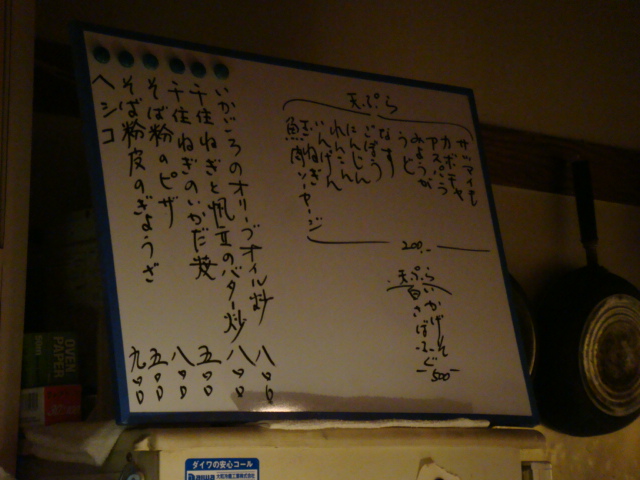 天ぷら
サツマイモ
カボチャ
アスパラ
みょうが
うど
なす
ごぼう
にんじん
れんこん
いんげん
玉ねぎ
魚肉ソーセージ
200.-
天ぷら
いかげそ
白さばふぐ
500-
いかごろのオリーブオイル炒 八〇〇
千住ねぎと帆立のバター炒 八〇〇
千住ねぎのいかだ焼 五〇〇
そば粉のピザ 八〇〇
そば粉皮のぎょうざ 五〇〇
ヘシコ 九〇〇
OVEN PAPER
ダイワの安心コール